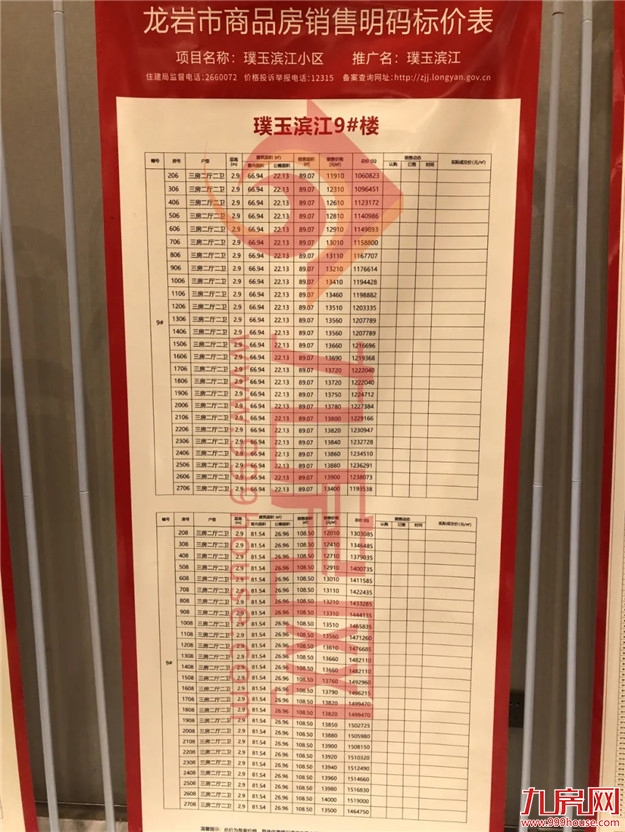 龙岩市商品房销售明码标价表
项目名称：璞玉滨江小区 推广名：璞玉滨江
住建局监督电话:2660072 价格投诉举报电话:12315 备案查询网址:http://zjj.longyan.gov.cn
璞玉滨江9#楼
幢号 房号 户型 层高(m) 建筑面积(㎡) 套内面积 公摊面积 销售面积(㎡) 销售价格(元/㎡) 总价(元) 销售动态 认购 已售 时间 实际成交价(元/㎡)
9#
206 三房二厅二卫 2.9 66.94 22.13 89.07 11910 1060823
306 三房二厅二卫 2.9 66.94 22.13 89.07 12310 1096451
406 三房二厅二卫 2.9 66.94 22.13 89.07 12610 1123172
506 三房二厅二卫 2.9 66.94 22.13 89.07 12810 1140986
606 三房二厅二卫 2.9 66.94 22.13 89.07 12910 1149893
706 三房二厅二卫 2.9 66.94 22.13 89.07 13010 1158800
806 三房二厅二卫 2.9 66.94 22.13 89.07 13110 1167707
906 三房二厅二卫 2.9 66.94 22.13 89.07 13210 1176614
1006 三房二厅二卫 2.9 66.94 22.13 89.07 13410 1194428
1106 三房二厅二卫 2.9 66.94 22.13 89.07 13460 1198882
1206 三房二厅二卫 2.9 66.94 22.13 89.07 13510 1203335
1306 三房二厅二卫 2.9 66.94 22.13 89.07 13560 1207789
1406 三房二厅二卫 2.9 66.94 22.13 89.07 13560 1207789
1506 三房二厅二卫 2.9 66.94 22.13 89.07 13660 1216696
1606 三房二厅二卫 2.9 66.94 22.13 89.07 13690 1219368
1706 三房二厅二卫 2.9 66.94 22.13 89.07 13720 1222040
1806 三房二厅二卫 2.9 66.94 22.13 89.07 13720 1222040
1906 三房二厅二卫 2.9 66.94 22.13 89.07 13750 1224712
2006 三房二厅二卫 2.9 66.94 22.13 89.07 13780 1227384
2106 三房二厅二卫 2.9 66.94 22.13 89.07 13800 1229166
2206 三房二厅二卫 2.9 66.94 22.13 89.07 13820 1230947
2306 三房二厅二卫 2.9 66.94 22.13 89.07 13840 1232728
2406 三房二厅二卫 2.9 66.94 22.13 89.07 13860 1234510
2506 三房二厅二卫 2.9 66.94 22.13 89.07 13880 1236291
2606 三房二厅二卫 2.9 66.94 22.13 89.07 13900 1238073
2706 三房二厅二卫 2.9 66.94 22.13 89.07 13400 1193538
幢号 房号 户型 层高(m) 建筑面积(㎡) 套内面积 公摊面积 销售面积(㎡) 销售价格(元/㎡) 总价(元) 销售动态 认购 已售 时间 实际成交价(元/㎡)
9#
208 三房二厅二卫 2.9 81.54 26.96 108.50 12010 1303085
308 三房二厅二卫 2.9 81.54 26.96 108.50 12410 1346485
408 三房二厅二卫 2.9 81.54 26.96 108.50 12710 1379035
508 三房二厅二卫 2.9 81.54 26.96 108.50 12910 1400735
608 三房二厅二卫 2.9 81.54 26.96 108.50 13010 1411585
708 三房二厅二卫 2.9 81.54 26.96 108.50 13110 1422435
808 三房二厅二卫 2.9 81.54 26.96 108.50 13210 1433285
908 三房二厅二卫 2.9 81.54 26.96 108.50 13310 1444135
1008 三房二厅二卫 2.9 81.54 26.96 108.50 13510 1465835
1108 三房二厅二卫 2.9 81.54 26.96 108.50 13560 1471260
1208 三房二厅二卫 2.9 81.54 26.96 108.50 13610 1476685
1308 三房二厅二卫 2.9 81.54 26.96 108.50 13660 1482110
1408 三房二厅二卫 2.9 81.54 26.96 108.50 13660 1482110
1508 三房二厅二卫 2.9 81.54 26.96 108.50 13760 1492960
1608 三房二厅二卫 2.9 81.54 26.96 108.50 13790 1496215
1708 三房二厅二卫 2.9 81.54 26.96 108.50 13820 1499470
1808 三房二厅二卫 2.9 81.54 26.96 108.50 13820 1499470
1908 三房二厅二卫 2.9 81.54 26.96 108.50 13850 1502725
2008 三房二厅二卫 2.9 81.54 26.96 108.50 13880 1505980
2108 三房二厅二卫 2.9 81.54 26.96 108.50 13900 1508150
2208 三房二厅二卫 2.9 81.54 26.96 108.50 13920 1510320
2308 三房二厅二卫 2.9 81.54 26.96 108.50 13940 1512490
2408 三房二厅二卫 2.9 81.54 26.96 108.50 13960 1514660
2508 三房二厅二卫 2.9 81.54 26.96 108.50 13980 1516830
2608 三房二厅二卫 2.9 81.54 26.96 108.50 14000 1519000
2708 三房二厅二卫 2.9 81.54 26.96 108.50 13500 1464750
温馨提示：
九房网
www.999house.com